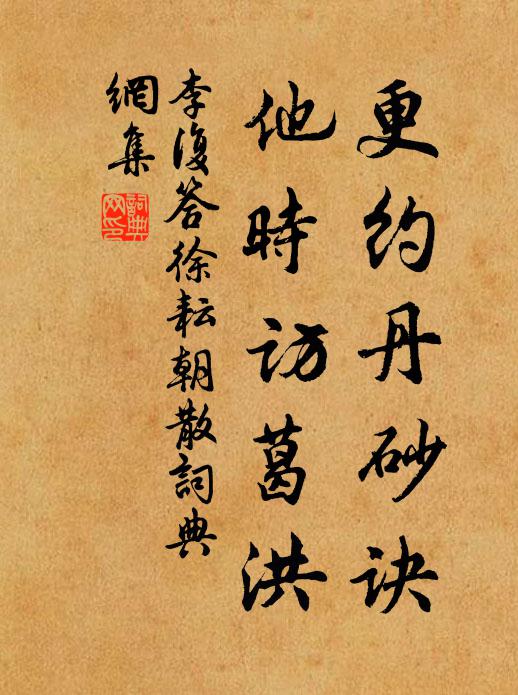 更约丹砂诀
他時访葛洪
李復答徐耘朝散詞典
網集
詞典网印